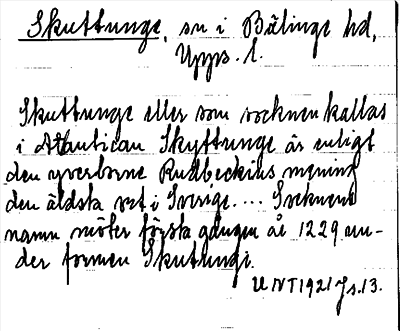 Skuttunge, sn i Bälinge hd,
Upps. l.
Skuttunge eller som socknen kallas
i Atlantican Skyttunge är enligt
den yverborne Rudbeckius mening
den äldsta ort i Sverige. ... Socknens
namn möter första gången år 1229 un-
der formen Skutungi.
UNT 1921 Js. 13.